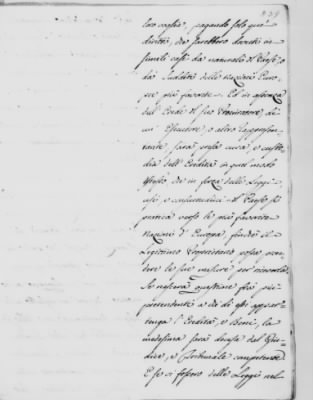 loro voglia, pagando solo quei
diritti, che sarebbero dovuti in
simili casi da naturali del Paese, o
da Sudditi delle nazioni Euro=
pee più favorite. Ed in assenza
dell'Erede, il suo Procuratore, di
un Esecutore, o altro rappresen
tante sarà presa cura, e custo
dia dell'Eredità in quel modo
stesso che in forza delle Leggi
usi, e consuetudini del Paese si
pratica verso le più favorite
nazioni d'Europa, finchè il
Legittimo Proprietario possa pren
dere le sue misure per riceverla.
Se nascerà questione fra più
pretendenti a chi di essi appar=
tenga l'Eredità, e Beni, la
medesima sarà decisa dal Giu
dice, o Tribunale competente.
E se vi fossero delle Leggi nel